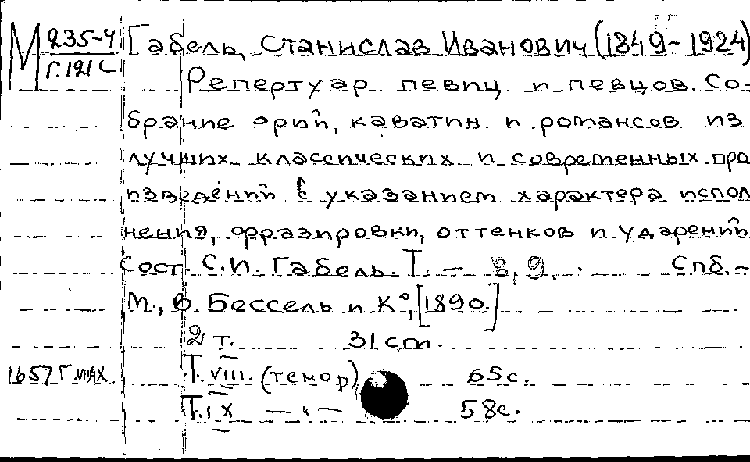 М 235-4 Габель, Станислав Иванович (1849-1924)
Г.121 С
Репертуар певиц и певцов. Со-
брание арий, каватин и романсов из
лучших классических и современных про
изведений с указанием характера испол
нения, фразировки, оттенков и ударений
Сост. С.И. Габель. Т. — 8, 9. Спб. -
М., В. Бессель и К°, [1890]
2 т. 31 cm.
1657 Т. VIII. (тенор) 65с.
Т. IX — " — 58с.